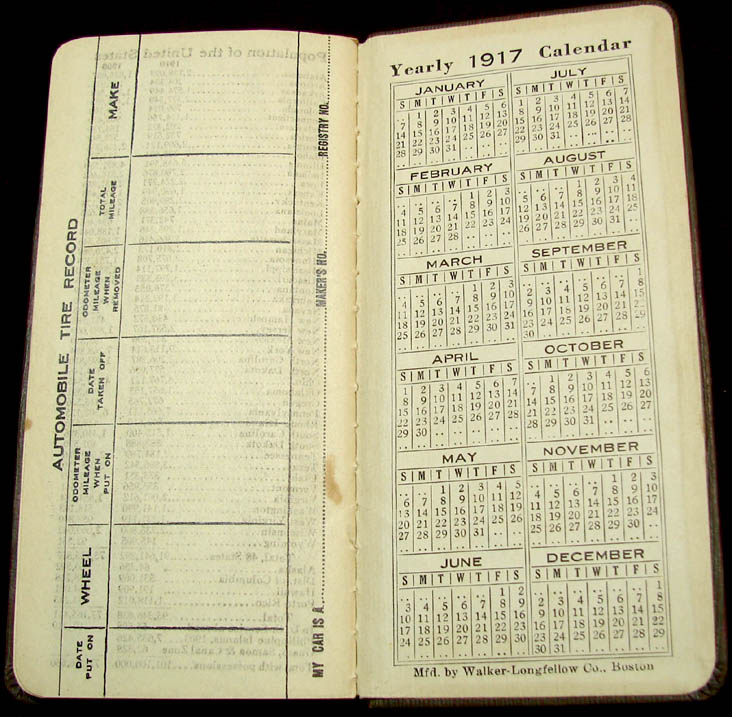 AUTOMOBILE TIRE RECORD
DATE PUT ON
WHEEL
ODOMETER MILEAGE WHEN PUT ON
DATE TAKEN OFF
ODOMETER MILEAGE WHEN REMOVED
TOTAL MILEAGE
MAKE
MY CAR IS A MAKER'S NO. REGISTRY NO.
Yearly 1917 Calendar
JANUARY
S M T W T F S
1 2 3 4 5 6
7 8 9 10 11 12 13
14 15 16 17 18 19 20
21 22 23 24 25 26 27
28 29 30 31
FEBRUARY
S M T W T F S
1 2 3
4 5 6 7 8 9 10
11 12 13 14 15 16 17
18 19 20 21 22 23 24
25 26 27 28
MARCH
S M T W T F S
1 2 3
4 5 6 7 8 9 10
11 12 13 14 15 16 17
18 19 20 21 22 23 24
25 26 27 28 29 30 31
APRIL
S M T W T F S
1 2 3 4 5 6 7
8 9 10 11 12 13 14
15 16 17 18 19 20 21
22 23 24 25 26 27 28
29 30
MAY
S M T W T F S
1 2 3 4 5
6 7 8 9 10 11 12
13 14 15 16 17 18 19
20 21 22 23 24 25 26
27 28 29 30 31
JUNE
S M T W T F S
1 2
3 4 5 6 7 8 9
10 11 12 13 14 15 16
17 18 19 20 21 22 23
24 25 26 27 28 29 30
JULY
S M T W T F S
1 2 3 4 5 6 7
8 9 10 11 12 13 14
15 16 17 18 19 20 21
22 23 24 25 26 27 28
29 30 31
AUGUST
S M T W T F S
1 2 3 4
5 6 7 8 9 10 11
12 13 14 15 16 17 18
19 20 21 22 23 24 25
26 27 28 29 30 31
SEPTEMBER
S M T W T F S
1
2 3 4 5 6 7 8
9 10 11 12 13 14 15
16 17 18 19 20 21 22
23 24 25 26 27 28 29
30
OCTOBER
S M T W T F S
1 2 3 4 5 6
7 8 9 10 11 12 13
14 15 16 17 18 19 20
21 22 23 24 25 26 27
28 29 30 31
NOVEMBER
S M T W T F S
1 2 3
4 5 6 7 8 9 10
11 12 13 14 15 16 17
18 19 20 21 22 23 24
25 26 27 28 29 30
DECEMBER
S M T W T F S
1
2 3 4 5 6 7 8
9 10 11 12 13 14 15
16 17 18 19 20 21 22
23 24 25 26 27 28 29
30 31
Mfd. by Walker-Longfellow Co., Boston